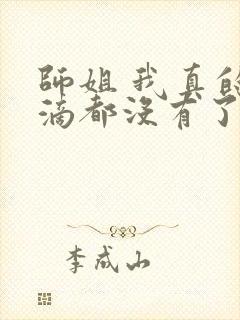 師姐我真的
滴都沒有了
李成山